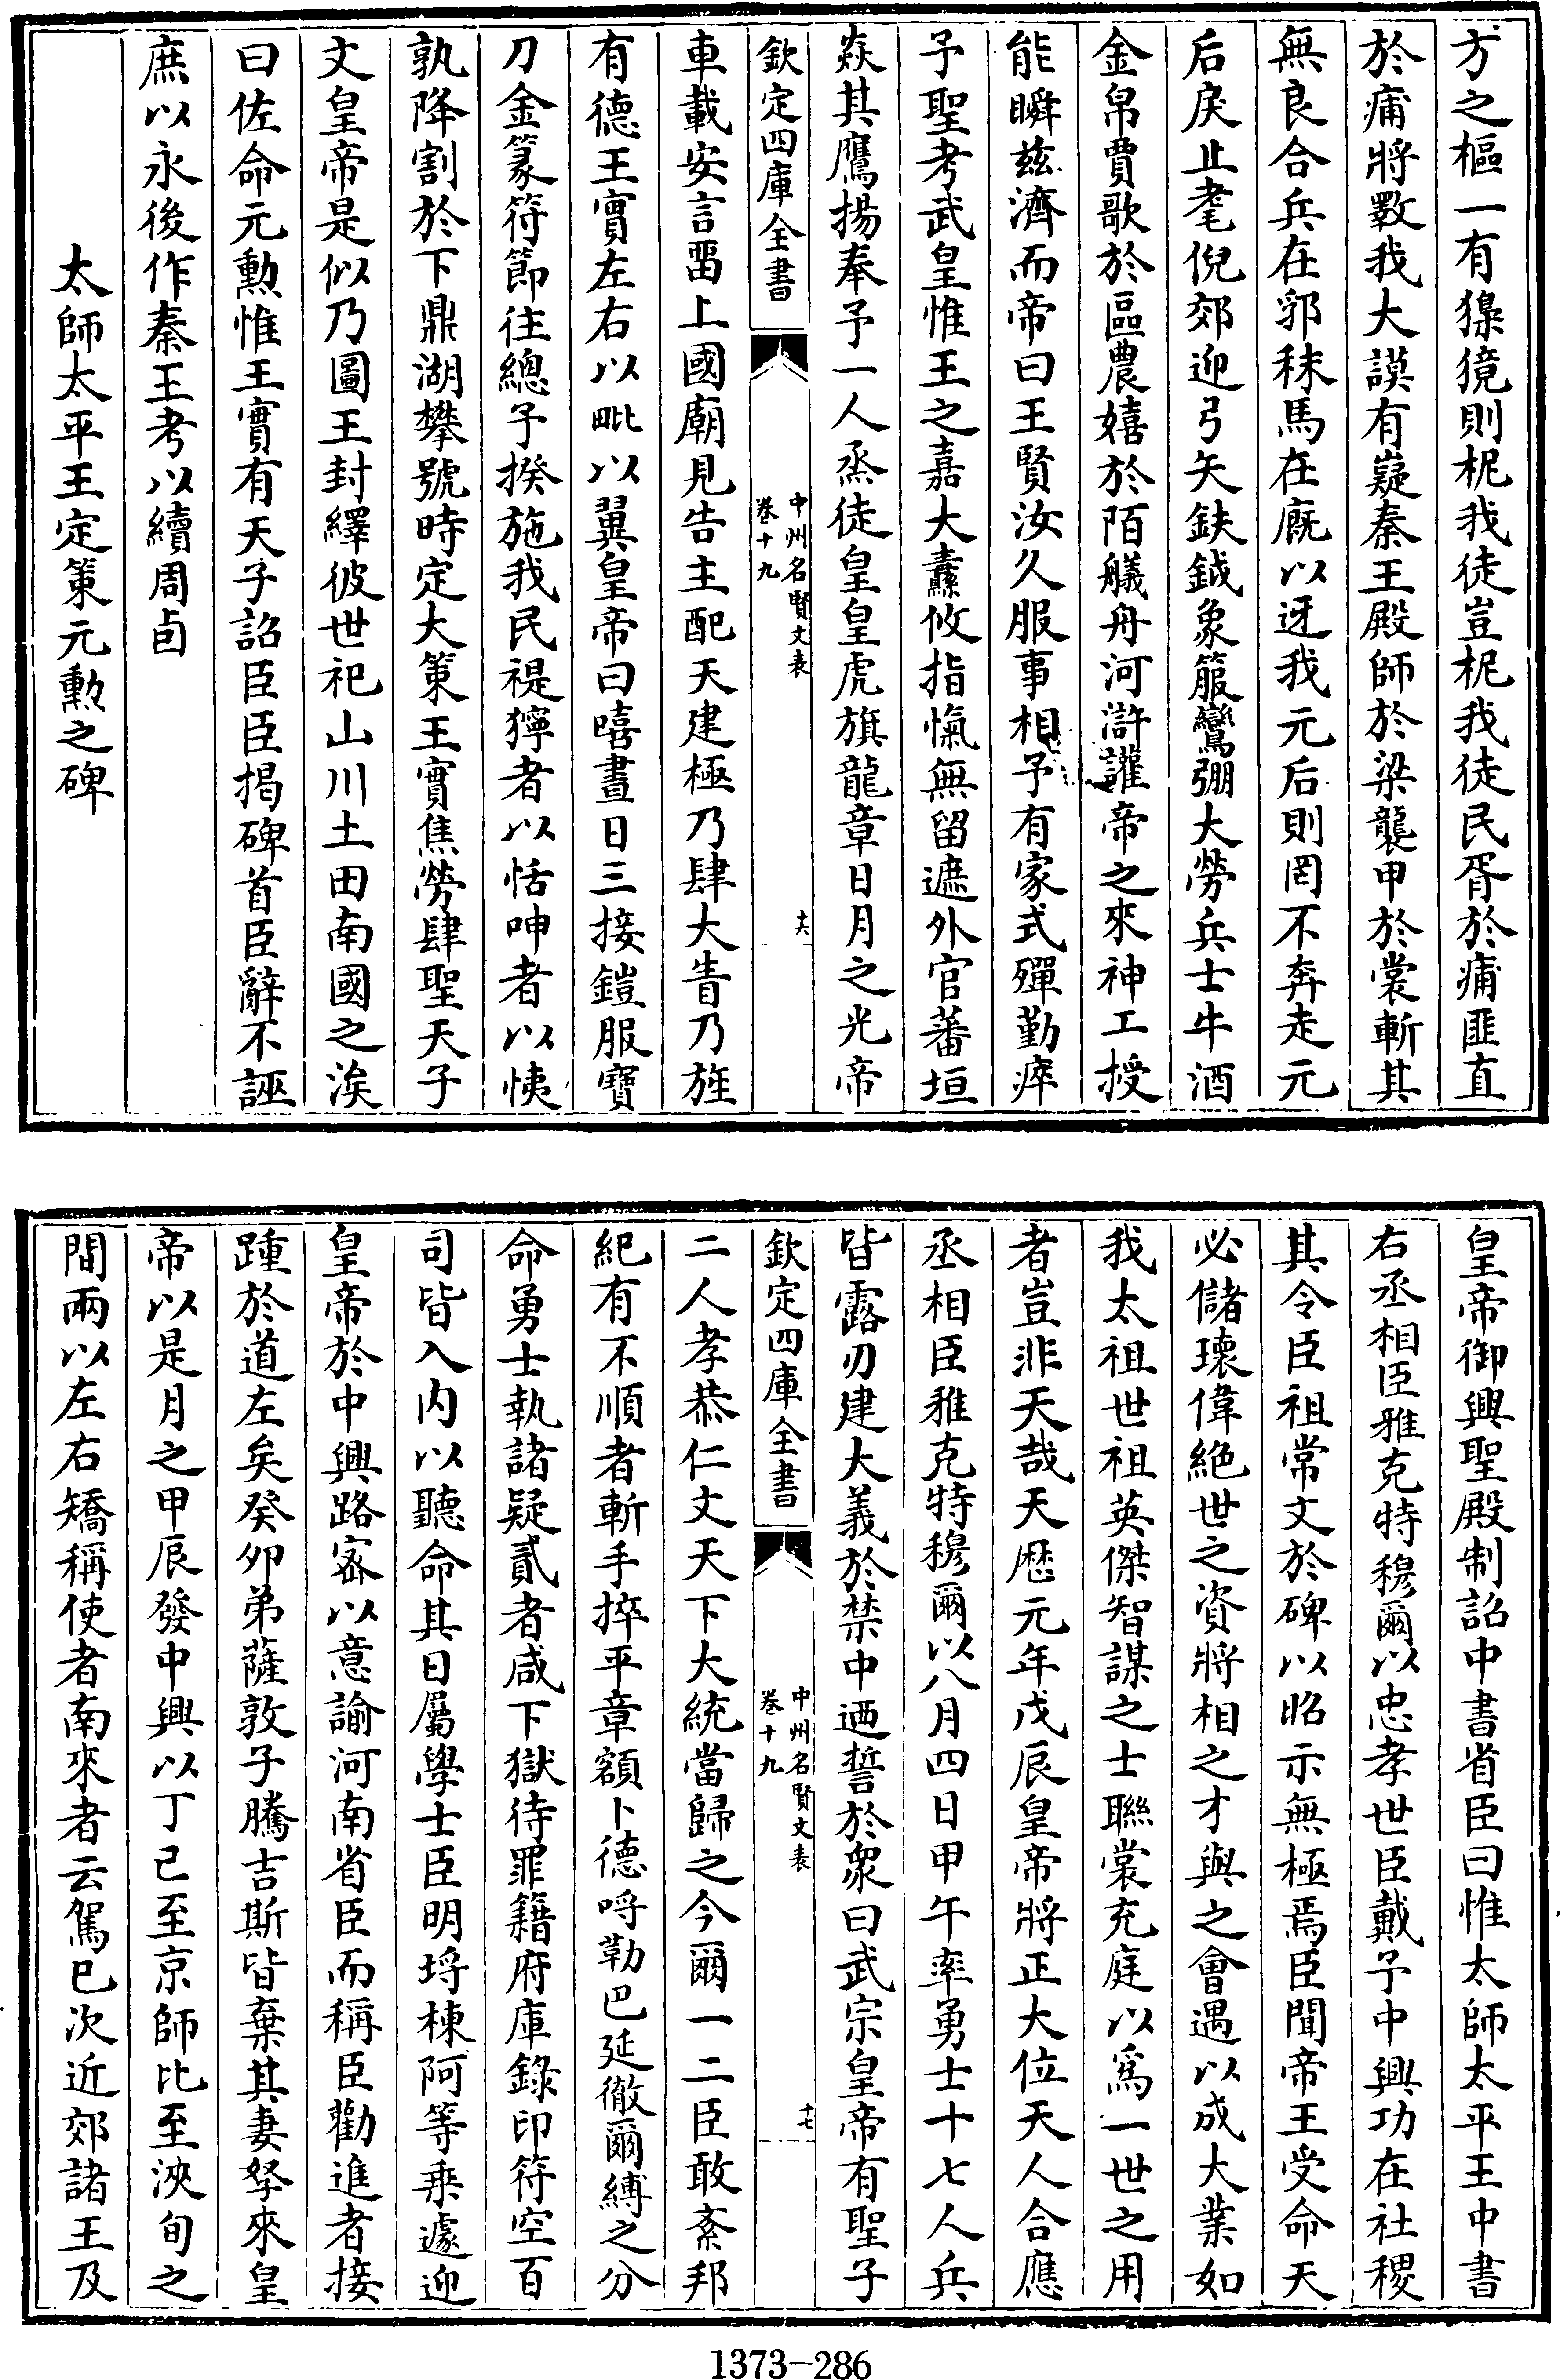 方之樞一有獍獍則柅我徒豈柅我徒民胥於痡匪直
於痡將斁我大謨有嶷秦王殿師於梁襲甲於裳斬其
無良合兵在郛秣馬在廐以迓我元后則罔不奔走元
后戾止耄倪郊迎弓矢鈇鉞象服鸞弸大勞兵士牛酒
金帛賈歌於區農嬉於陌艤舟河滸讙帝之來神工授
能瞬玆濟而帝曰王賢汝久服事相予有家式殫勤瘁
予聖考武皇惟王之嘉大纛攸指愾無留遮外官蕃垣
焱其鷹揚奉予一人烝徒皇皇虎旗龍章日月之光帝
欽定四庫全書
中州名賢文表
卷十九
十六
車載安言畱上國廟見告主配天建極乃肆大眚乃旌
有德王實左右以毗以翼皇帝曰嘻晝日三接鎧服寶
刀金篆符節往總予揆施我民禔獰者以恬呻者以怏
孰降割於下鼎湖攀號時定大策王實焦勞肆聖天子
文皇帝是似乃圖王封繹彼世祀山川土田南國之涘
曰佐命元勲惟王實有天子詔臣臣揭碑首臣辭不誣
庶以永後作秦王考以續周卣
太師太平王定策元勲之碑
皇帝御興聖殿制詔中書省臣曰惟太師太平王中書
右丞相臣雅克特穆爾以忠孝世臣戴予中興功在社稷
其令臣祖常文於碑以昭示無極焉臣聞帝王受命天
必儲瓌偉絶世之資將相之才與之會遇以成大業如
我太祖世祖英傑智謀之士聯裳充庭以為一世之用
者豈非天哉天厯元年戊辰皇帝將正大位天人合應
丞相臣雅克特穆爾以八月四日甲午率勇士十七人兵
皆露刃建大義於禁中迺誓於衆曰武宗皇帝有聖子
欽定四庫全書
中州名賢文表
卷十九
十七
二人孝恭仁文天下大統當歸之今爾一二臣敢紊邦
紀有不順者斬手捽平章額卜德呼勒巴延徹爾縛之分
命勇士執諸疑貳者咸下獄待罪籍府庫錄印符空百
司皆入内以聽命其日屬學士臣明埒棟阿等乗遽迎
皇帝於中興路宻以意諭河南省臣而稱臣勸進者接
踵於道左矣癸夘弟薩敦子騰吉斯皆棄其妻孥來皇
帝以是月之甲辰發中興以丁巳至京師比至浹旬之
間兩以左右矯稱使者南來者云駕已次近郊諸王及
1373-286